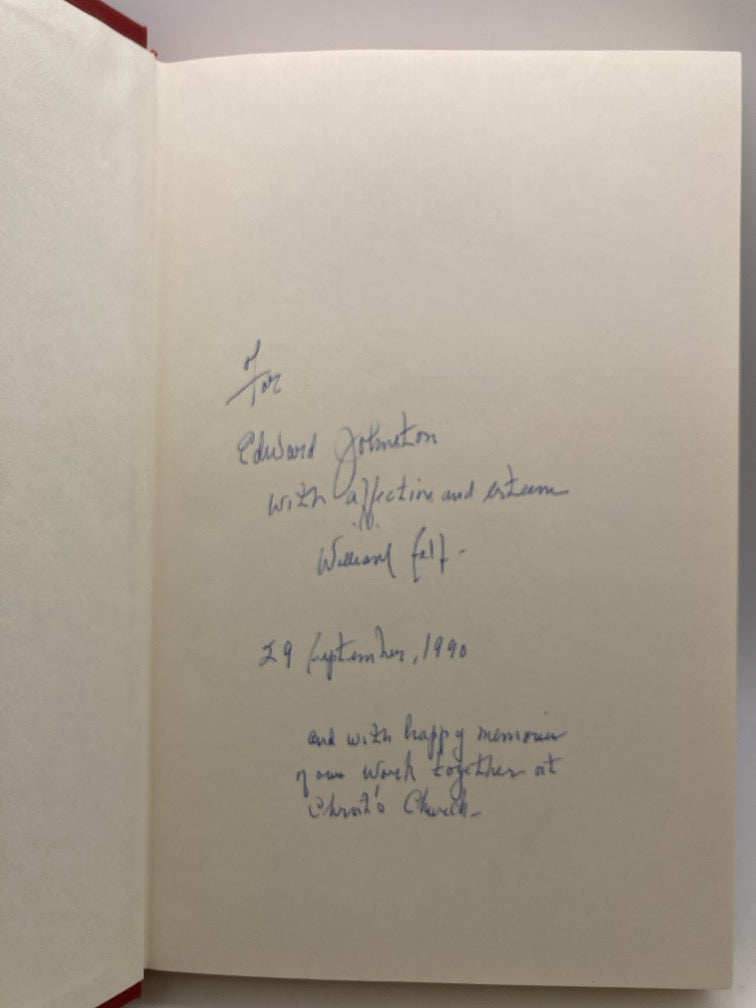 For
Edward Johnston
with affection and esteem
William
29 September, 1990
and with happy memories
of our work together at
Christ's Church.